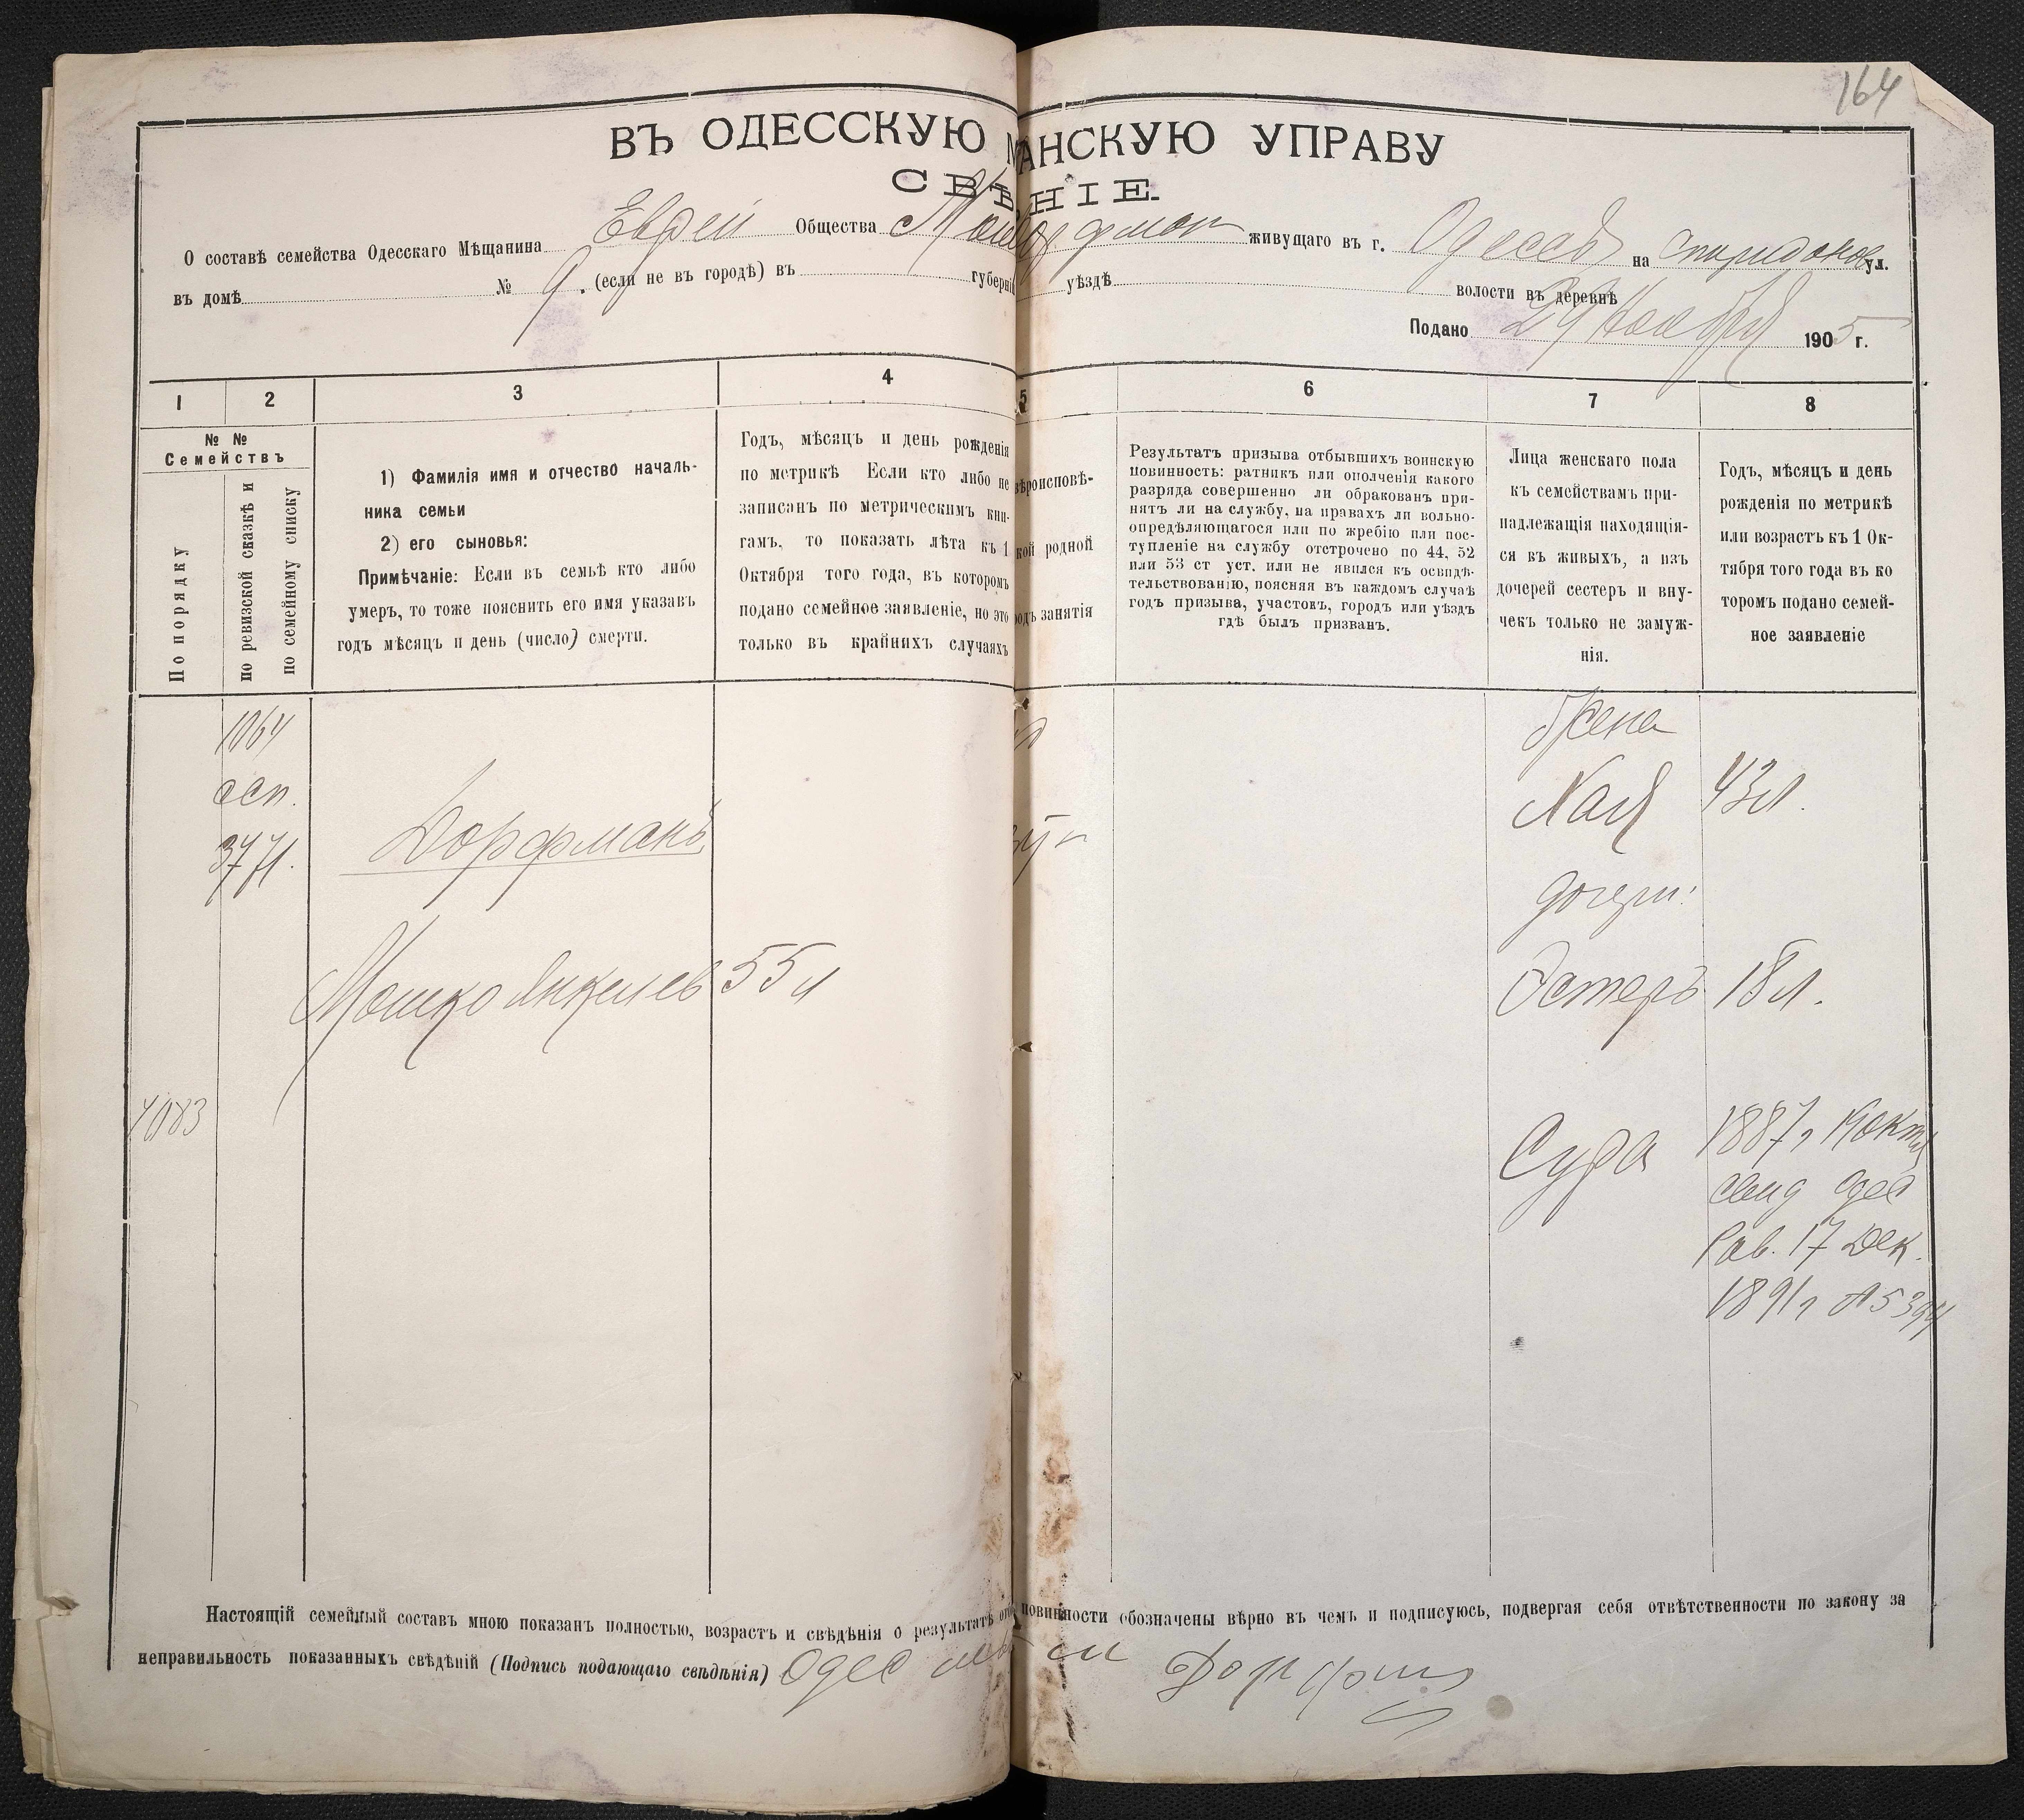 164
ВЪ ОДЕССКУЮ М АНСКУЮ УПРАВУ
СВѢ НІЕ.
О составѣ семейства Одесскаго Мѣщанина Еврей Общества Мошко Дорфман живущаго въ г. Одессѣ на Спиридонов ул.
въ домѣ № 9. (если не въ городѣ) въ губерніи уѣздѣ волости въ деревнѣ
Подано 29 Ноября 1905 г.
1 2 3 4 5 6 7 8
№ №
Семействъ
По порядку
по ревизской сказкѣ и
по семейному списку
1) Фамилія имя и отчество началь-
ника семьи
2) его сыновья:
Примѣчаніе: Если въ семьѣ кто либо
умеръ, то тоже пояснить его имя указавъ
годъ мѣсяцъ и день (число) смерти.
Годъ, мѣсяцъ и день рожденія
по метрикѣ Если кто либо не
записанъ по метрическимъ кни-
гамъ, то показать лѣта къ 1
Октября того года, въ которомъ
подано семейное заявленіе, но это
только въ крайнихъ случаяхъ
ѣроисповѣ-
кой родной
одъ занятія
Результатъ призыва отбывшихъ воинскую
повинность: ратникъ или ополченія какого
разряда совершенно ли обракованъ при-
нятъ ли на службу, на правахъ ли вольно-
опредѣляющагося или по жребію или пос-
тупленіе на службу отстрочено по 44, 52
или 53 ст уст. или не явился къ освидѣ-
тельствованію, поясняя въ каждомъ случаѣ
годъ призыва, участокъ, городъ или уѣздъ
гдѣ былъ призванъ.
Лица женскаго пола
къ семействамъ при-
надлежащія находящія-
ся въ живыхъ, а изъ
дочерей сестеръ и вну-
чекъ только не замуж-
нія.
Годъ, мѣсяцъ и день
рожденія по метрикѣ
или возрастъ къ 1 Ок-
тября того года въ ко
торомъ подано семей-
ное заявленіе
1064
3771.
Дорфманъ
Мошко Янкелев 55 л
4083
жена
Хая 43 л.
дочери:
Эстеръ 18 л.
Сура 1887 г 14 октя
свид Одес
Рав. 17 Дек.
1891 г № 5394
Настоящій семейный составъ мною показанъ полностью, возрастъ и свѣдѣнія о результатѣ от повинности обозначены вѣрно въ чемъ и подписуюсь, подвергая себя отвѣтственности по закону за
неправильность показанныхъ свѣдѣній (Подпись подающаго свѣдѣнія) Одес мѣ м Дорфман